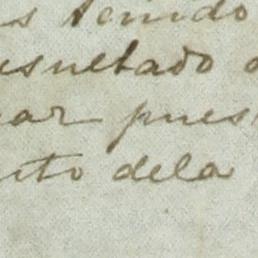 s tenido
esultado
ar pues
to dela